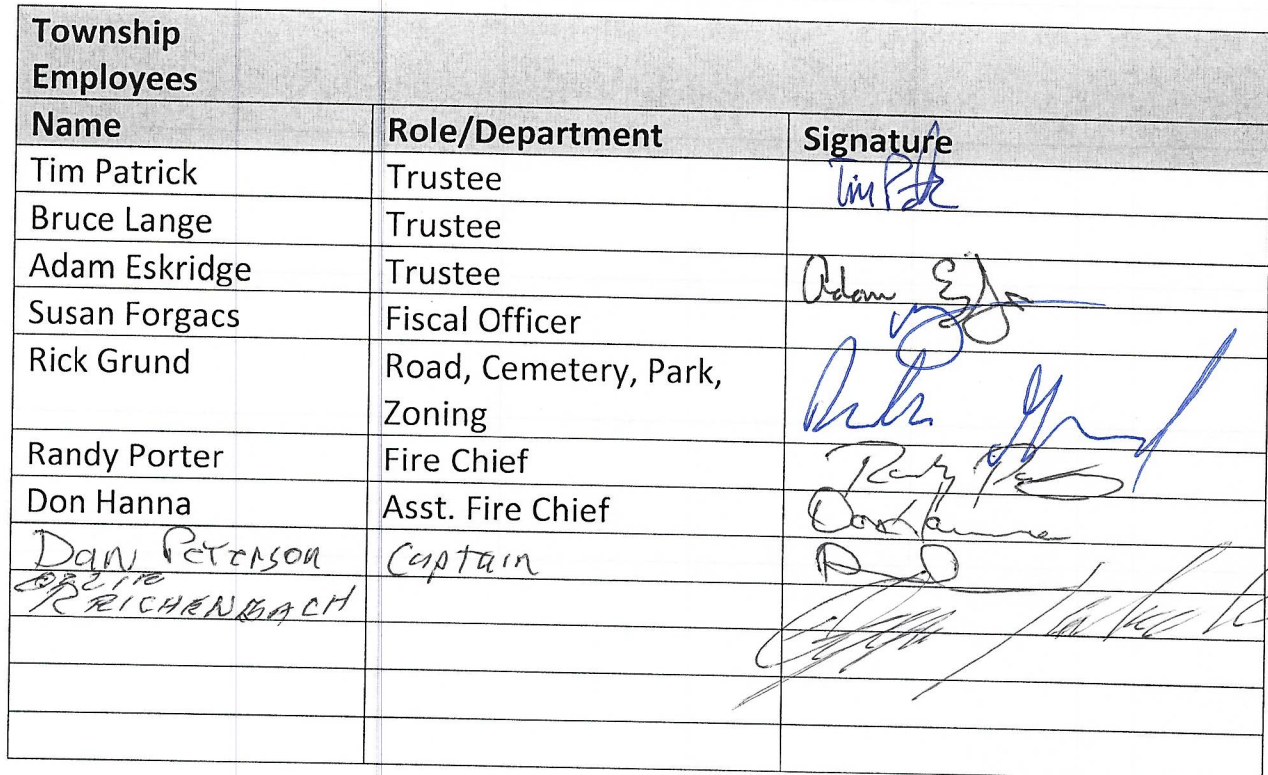 Township
Employees
Name Role/Department Signature
Tim Patrick Trustee Tim Patrick
Bruce Lange Trustee
Adam Eskridge Trustee Adam
Susan Forgacs Fiscal Officer
Rick Grund Road, Cemetery, Park,
Zoning
Randy Porter Fire Chief Randy
Don Hanna Asst. Fire Chief Don Hanna
Dan Peterson Captain
REICHENBACH